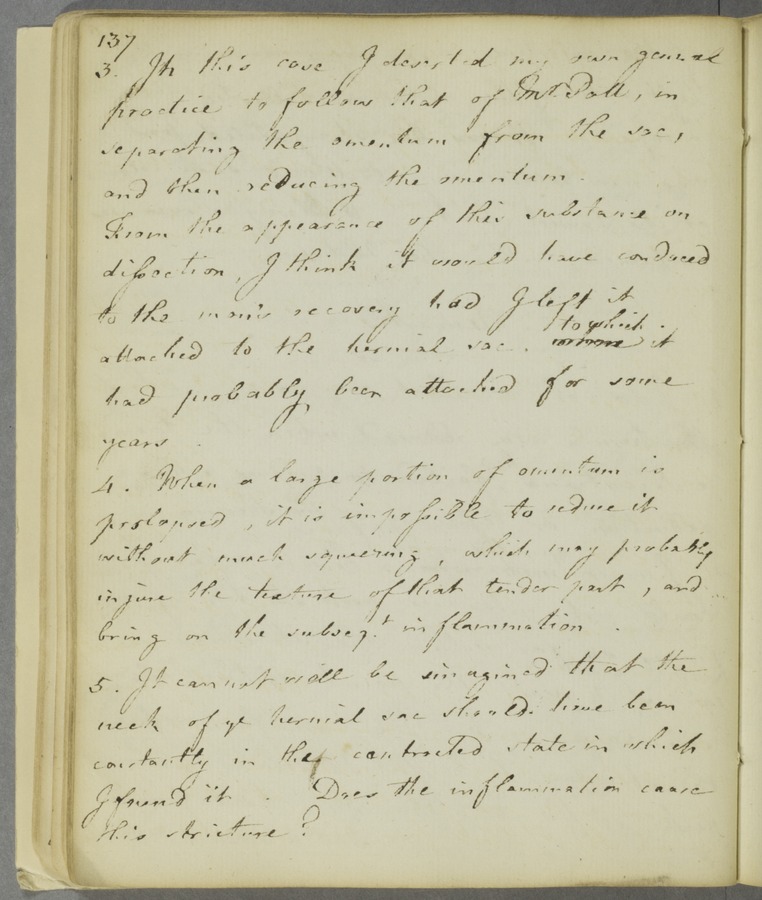 137
3. In this case I deserted my own general
practice to follow that of Mr. Pott, in
separating the omentum from the sac,
and then reducing the omentum.
From the appearance of this substance on
dissection, I think it would have conduced
to the man's recovery had I left it
to which
attached to the hernial sac. it
had probably been attached for some
years.
4. When a large portion of omentum is
prolapsed, it is impossible to reduce it
without much squeezing, which may probably
injure the texture of that tender part, and
bring on the subseqt. inflammation.
5. It cannot well be imagined that the
neck of ye hernial sac should have been
constantly in the contracted state in which
I found it. Does the inflammation cause
this stricture?